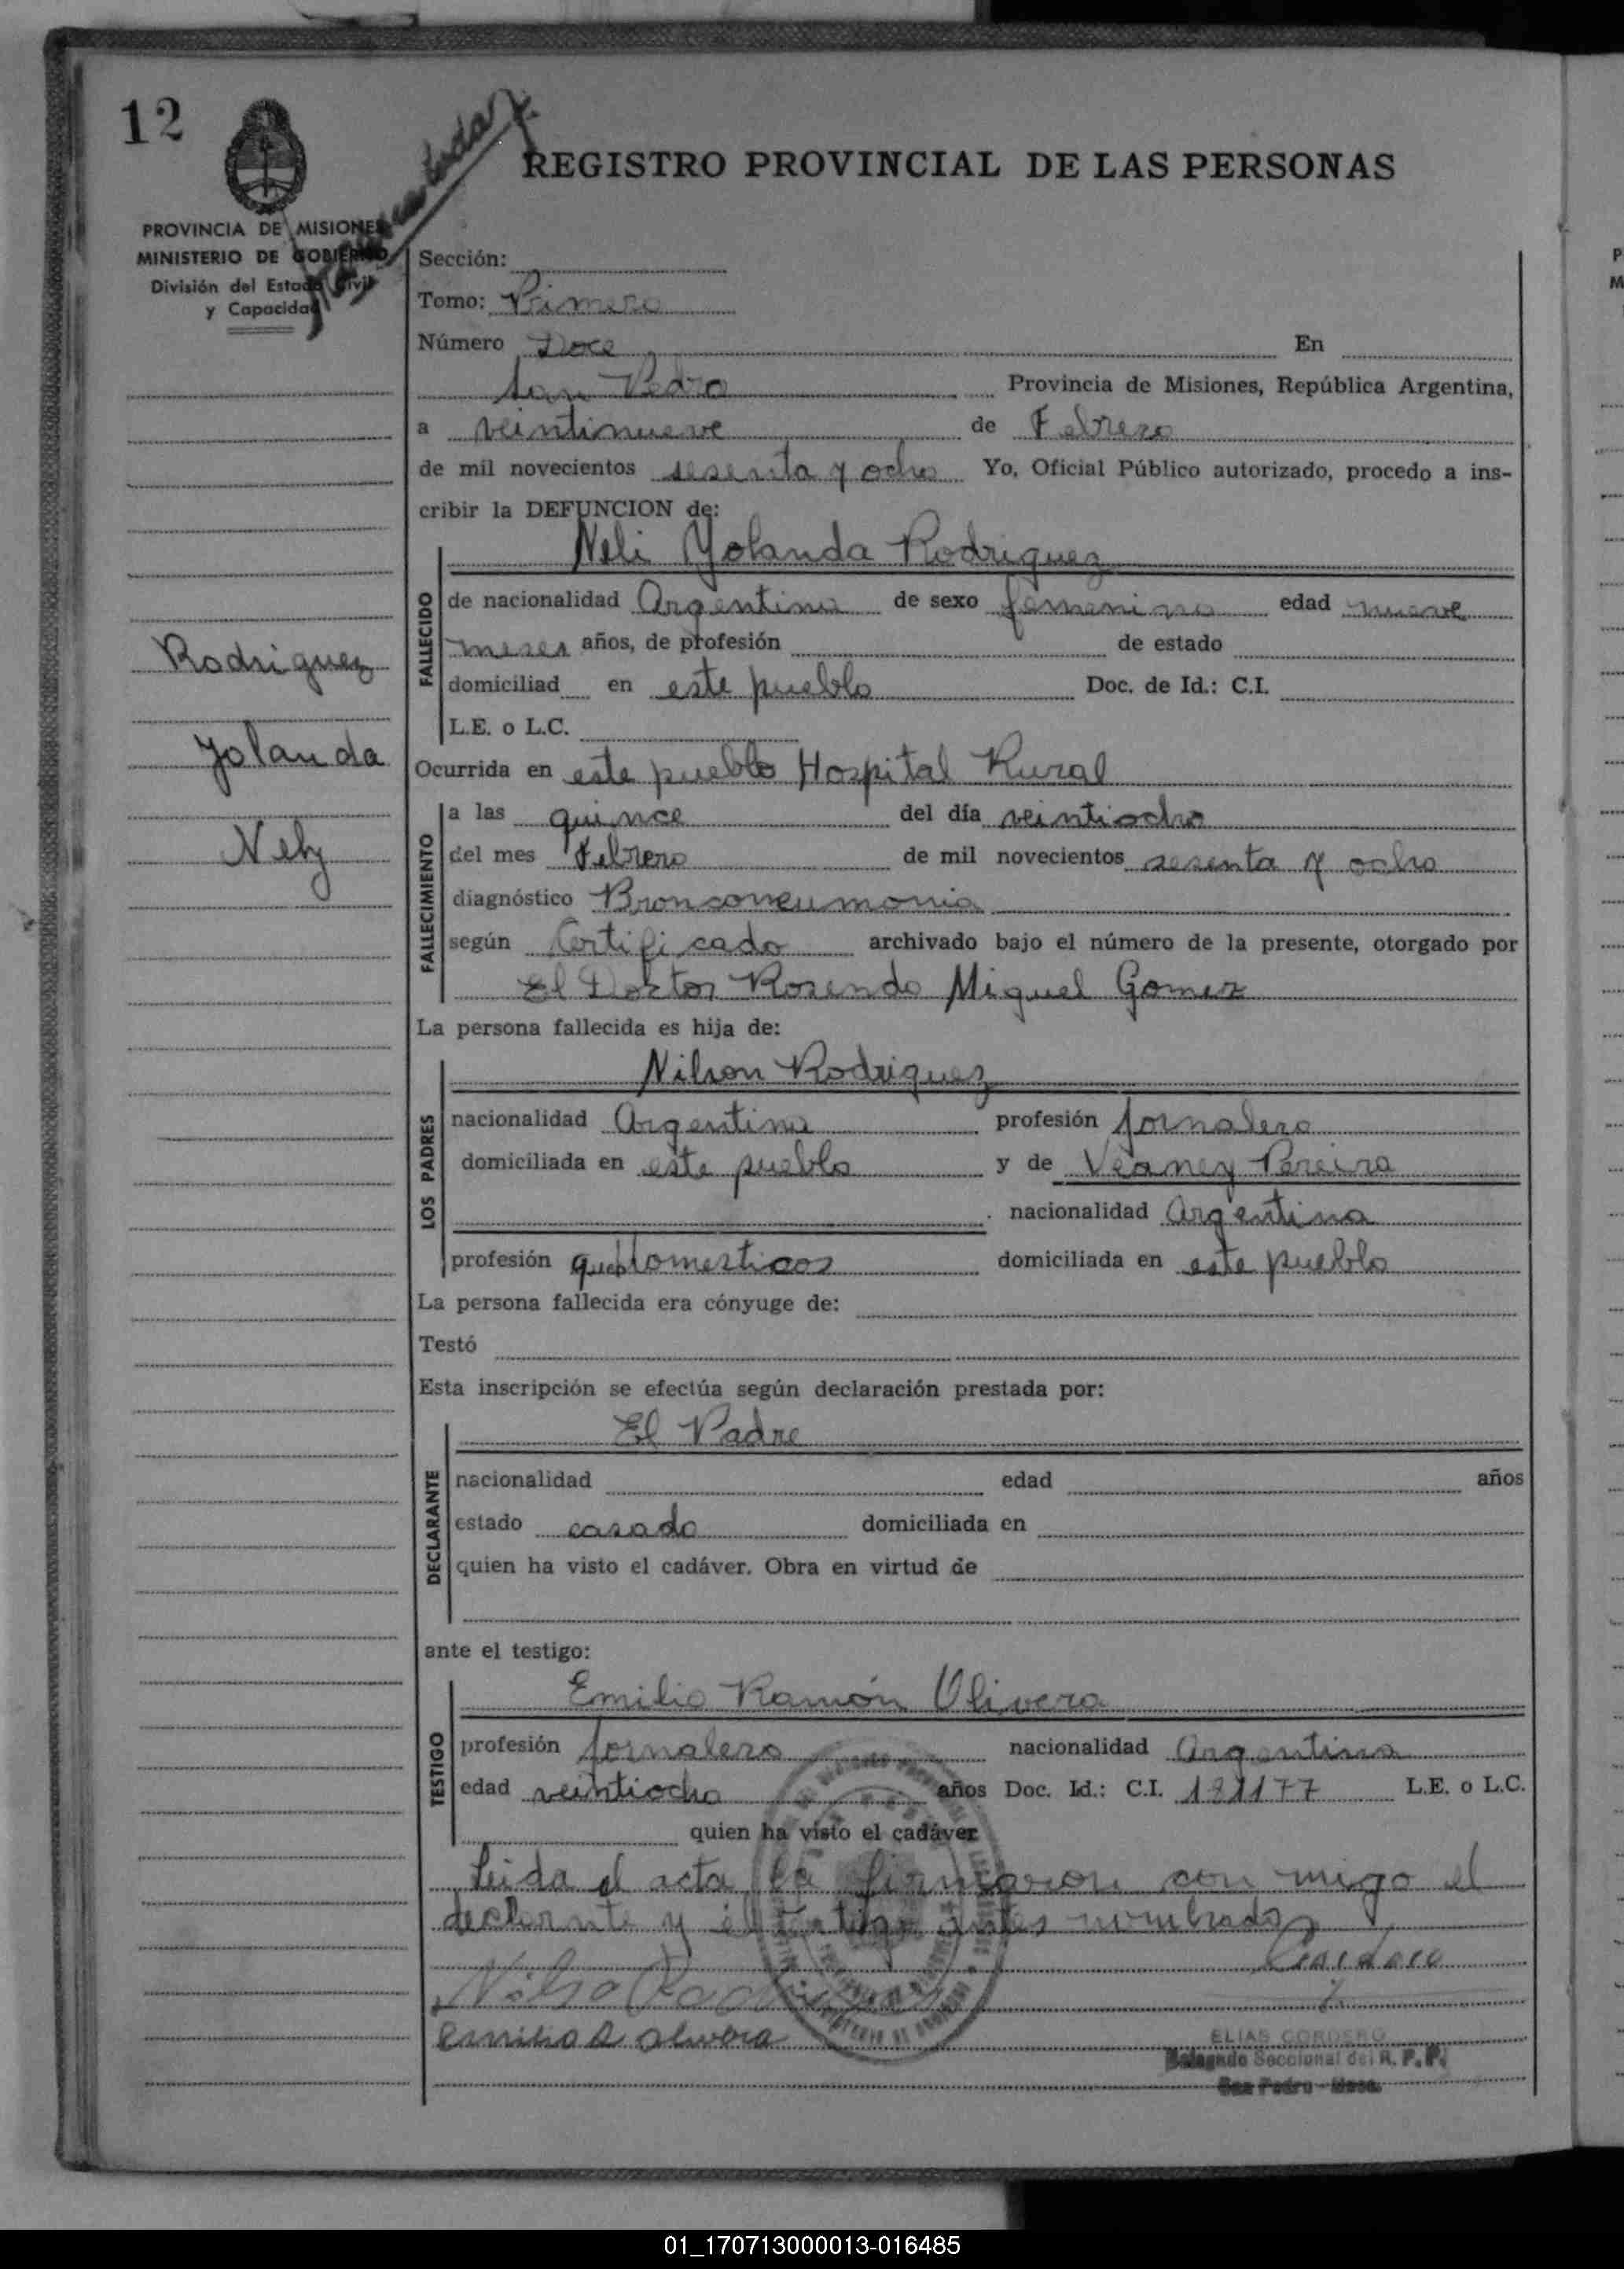 12
REGISTRO PROVINCIAL DE LAS PERSONAS
PROVINCIA DE MISIONES
MINISTERIO DE GOBIERNO
División del Estado Civil
y Capacidad
Rodriguez
Yolanda
Nely
Sección:
Tomo: Primero
Número Doce En
San Pedro Provincia de Misiones, República Argentina,
a veintinueve de Febrero
de mil novecientos sesenta y ocho Yo, Oficial Público autorizado, procedo a ins-
cribir la DEFUNCION de:
Neli Yolanda Rodriguez
FALLECIDO
de nacionalidad Argentina de sexo femenino edad nueve
meses años, de profesión de estado
domiciliad en este pueblo Doc. de Id.: C.I.
L.E. o L.C.
Ocurrida en este pueblo Hospital Rural
FALLECIMIENTO
a las quince del día veintiocho
del mes Febrero de mil novecientos sesenta y ocho
diagnóstico Bronconeumonia
según Certificado archivado bajo el número de la presente, otorgado por
El Doktor Rosendo Miguel Gomez
La persona fallecida es hija de:
Nilson Rodriguez
LOS PADRES
nacionalidad Argentina profesión Jornalero
domiciliada en este pueblo y de Veaney Pereira
nacionalidad Argentina
profesión domesticos domiciliada en este pueblo
La persona fallecida era cónyuge de:
Testó
Esta inscripción se efectúa según declaración prestada por:
El Padre
DECLARANTE
nacionalidad edad años
estado casado domiciliada en
quien ha visto el cadáver. Obra en virtud de
ante el testigo:
Emilio Ramón Olivera
TESTIGO
profesión Jornalero nacionalidad Argentina
edad veintiocho años Doc. Id.: C.I. 121177 L.E. o L.C.
quien ha visto el cadáver
Leida el acta la firmaron con migo el
declarante y el testigo antes nombrados
Emilio R Olivera
ELIAS CORDERO
Delegado Seccional del R. P. P.
San Pedro - Mnes.
01_170713000013-016485